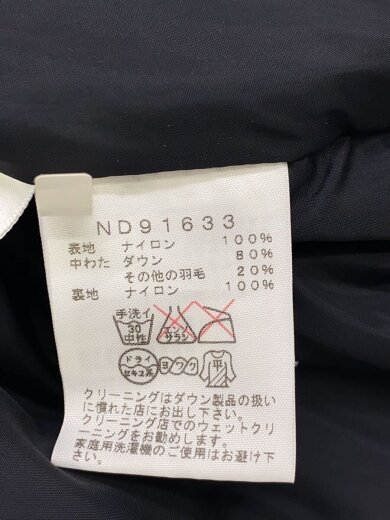 ND91633
表地 ナイロン 100%
中わた ダウン 80%
その他の羽毛 20%
裏地 ナイロン 100%
手洗イ
30
中性
エンソ
サラシ
ドライ
セキユ系
ヨワク
平
クリーニングはダウン製品の扱い
に慣れた店にお出し下さい。
クリーニング店でのウェットクリ
ーニングをお勧めします。
家庭用洗濯機のご使用はお避け下
さい。